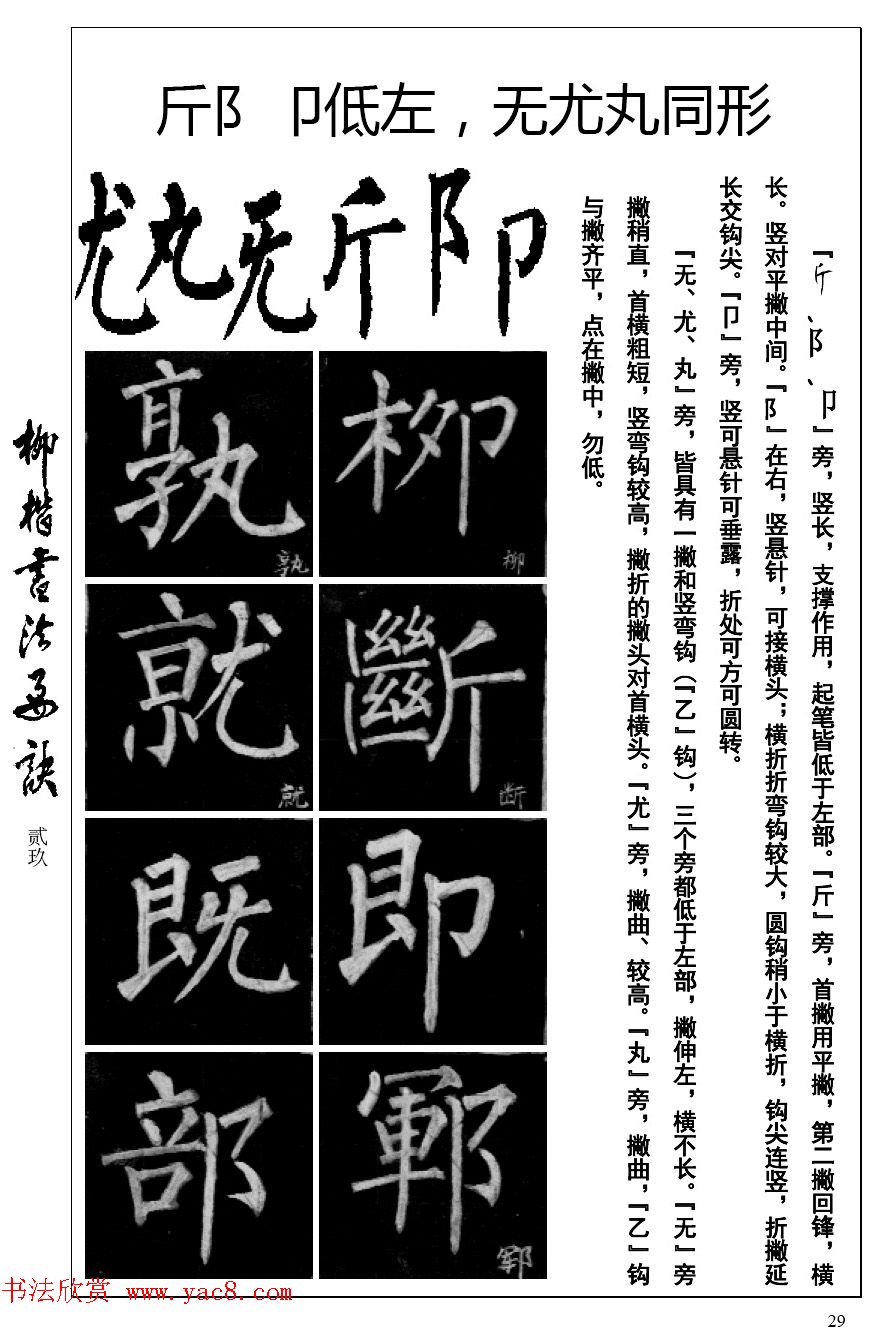 斤阝 卩低左，无尤丸同形
『斤、阝、卩』旁，竖长，支撑作用，起笔皆低于左部。『斤』旁，首撇用平撇，第二撇回锋，横
长。竖对平撇中间。『阝』在右，竖悬针，可接横头；横折折弯钩较大，圆钩稍小于横折，钩尖连竖，折撇延
长交钩尖。『卩』旁，竖可悬针可垂露，折处可方可圆转。
『无、尤、丸』旁，皆具有一撇和竖弯钩（『乙』钩），三个旁都低于左部，撇伸左，横不长。『无』旁
撇稍直，首横粗短，竖弯钩较高，撇折的撇头对首横头。『尤』旁，撇曲、较高。『丸』旁，撇曲，『乙』钩
与撇齐平，点在撇中，勿低。
卩
阝
斤
旡
丸
尤
柳
柳
斷
断
即
鄆
鄆
孰
孰
就
就
既
部
柳楷书法要诀
贰玖
书法欣赏 www.yac8.com
29